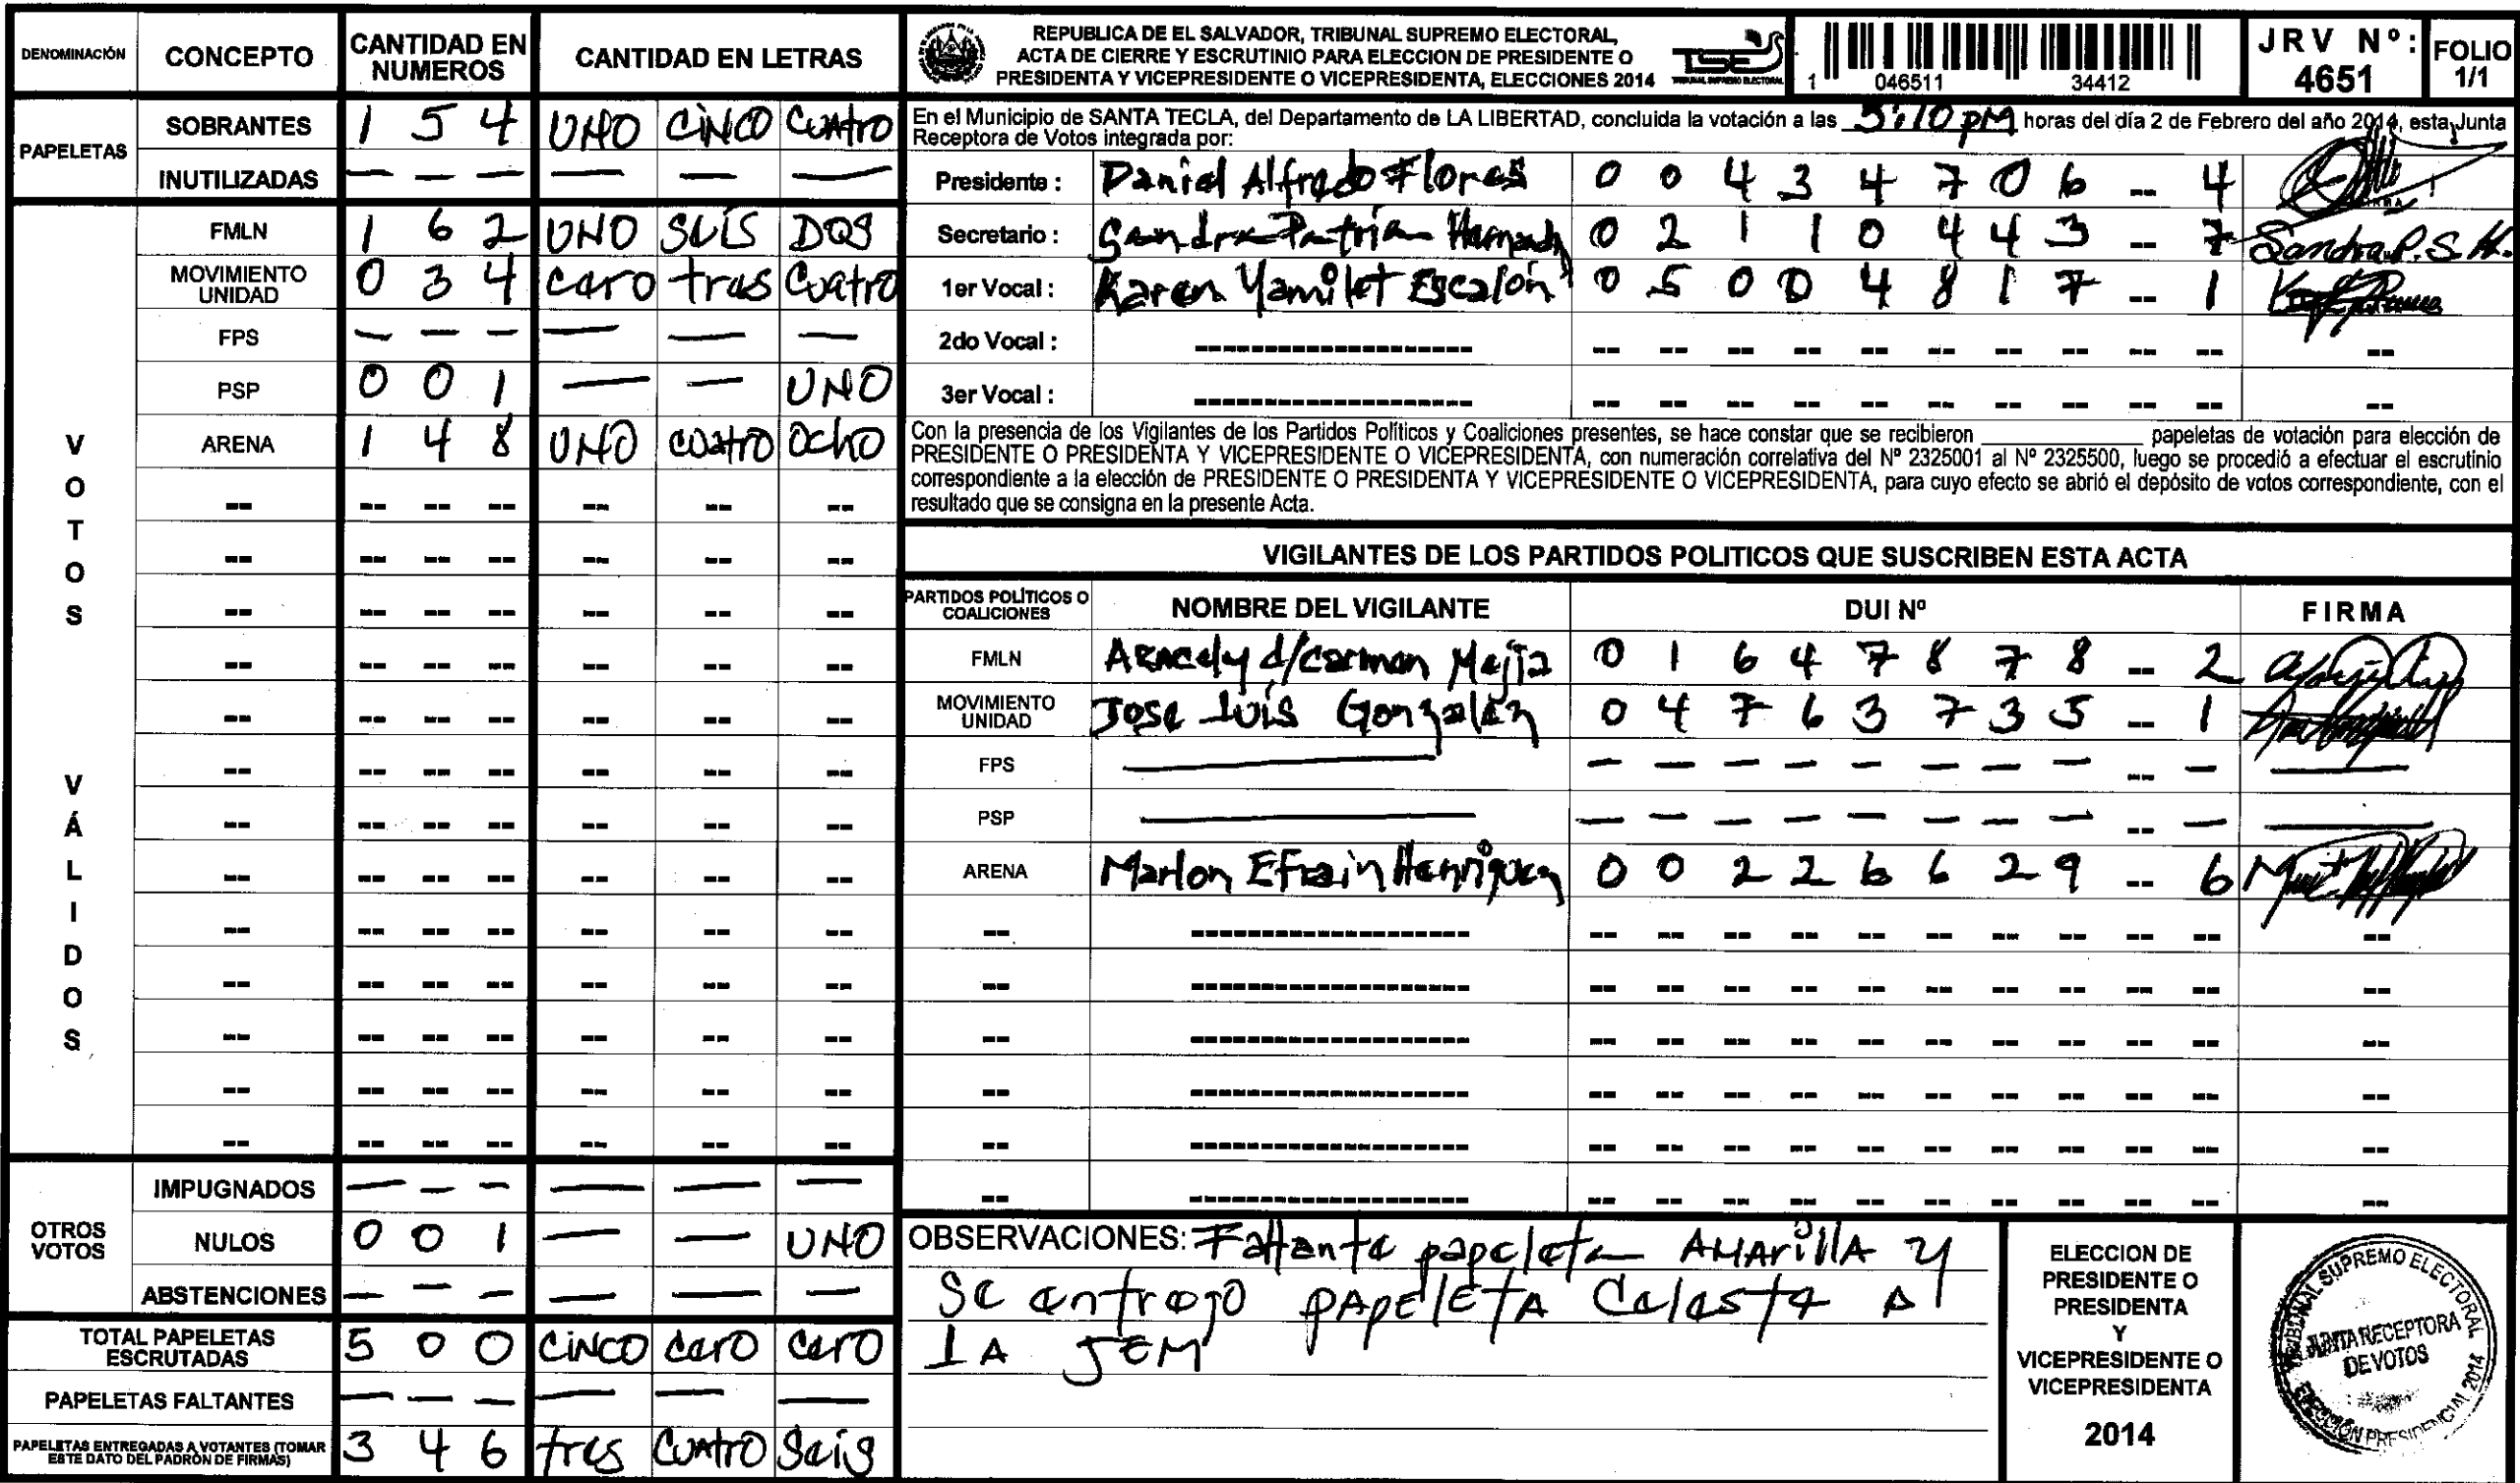 DENOMINACIÓN CONCEPTO CANTIDAD EN NUMEROS CANTIDAD EN LETRAS
PAPELETAS
SOBRANTES 1 5 4 UNO CINCO CUATRO
INUTILIZADAS — — — — — —
VOTOS VÁLIDOS
FMLN 1 6 2 UNO SEIS DOS
MOVIMIENTO UNIDAD 0 3 4 cero tres Cuatro
FPS — — — — — —
PSP 0 0 1 — — UNO
ARENA 1 4 8 UNO cuatro Ocho
OTROS VOTOS
IMPUGNADOS — — — — — —
NULOS 0 0 1 — — UNO
ABSTENCIONES — — — — — —
TOTAL PAPELETAS ESCRUTADAS 5 0 0 CINCO cero cero
PAPELETAS FALTANTES — — — — — —
PAPELETAS ENTREGADAS A VOTANTES (TOMAR ESTE DATO DEL PADRÓN DE FIRMAS) 3 4 6 tres CUATRO Seis
REPUBLICA DE EL SALVADOR, TRIBUNAL SUPREMO ELECTORAL,
ACTA DE CIERRE Y ESCRUTINIO PARA ELECCION DE PRESIDENTE O
PRESIDENTA Y VICEPRESIDENTE O VICEPRESIDENTA, ELECCIONES 2014
TSE
TRIBUNAL SUPREMO ELECTORAL
1 046511 34412
JRV Nº: 4651
FOLIO 1/1
En el Municipio de SANTA TECLA, del Departamento de LA LIBERTAD, concluida la votación a las 5:10 PM horas del día 2 de Febrero del año 2014, esta Junta
Receptora de Votos integrada por:
Presidente : Daniel Alfredo Flores 0 0 4 3 4 7 0 6 -- 4
Secretario : Sandra Patricia Hernandz 0 2 1 1 0 4 4 3 -- 7 Sandra P. S. H.
1er Vocal : Karen Yamilet Escalón 0 5 0 0 4 8 1 7 -- 1
2do Vocal :
3er Vocal :
Con la presencia de los Vigilantes de los Partidos Políticos y Coaliciones presentes, se hace constar que se recibieron ____________ papeletas de votación para elección de
PRESIDENTE O PRESIDENTA Y VICEPRESIDENTE O VICEPRESIDENTA, con numeración correlativa del Nº 2325001 al Nº 2325500, luego se procedió a efectuar el escrutinio
correspondiente a la elección de PRESIDENTE O PRESIDENTA Y VICEPRESIDENTE O VICEPRESIDENTA, para cuyo efecto se abrió el depósito de votos correspondiente, con el
resultado que se consigna en la presente Acta.
VIGILANTES DE LOS PARTIDOS POLITICOS QUE SUSCRIBEN ESTA ACTA
PARTIDOS POLÍTICOS O COALICIONES NOMBRE DEL VIGILANTE DUI Nº FIRMA
FMLN Aracely d/carmen Mejia 0 1 6 4 7 8 7 8 -- 2
MOVIMIENTO UNIDAD Jose Luis Gonzalez 0 4 7 6 3 7 3 5 -- 1
FPS
PSP
ARENA Marlon Efrain Henriquez 0 0 2 2 6 6 2 9 -- 6
OBSERVACIONES: Faltante papeleta AMArillA y
Se entrego PAPELETA Celeste A
LA JEM
ELECCION DE
PRESIDENTE O
PRESIDENTA
Y
VICEPRESIDENTE O
VICEPRESIDENTA
2014
TRIBUNAL SUPREMO ELECTORAL
JUNTA RECEPTORA
DE VOTOS
ELECCIÓN PRESIDENCIAL 2014